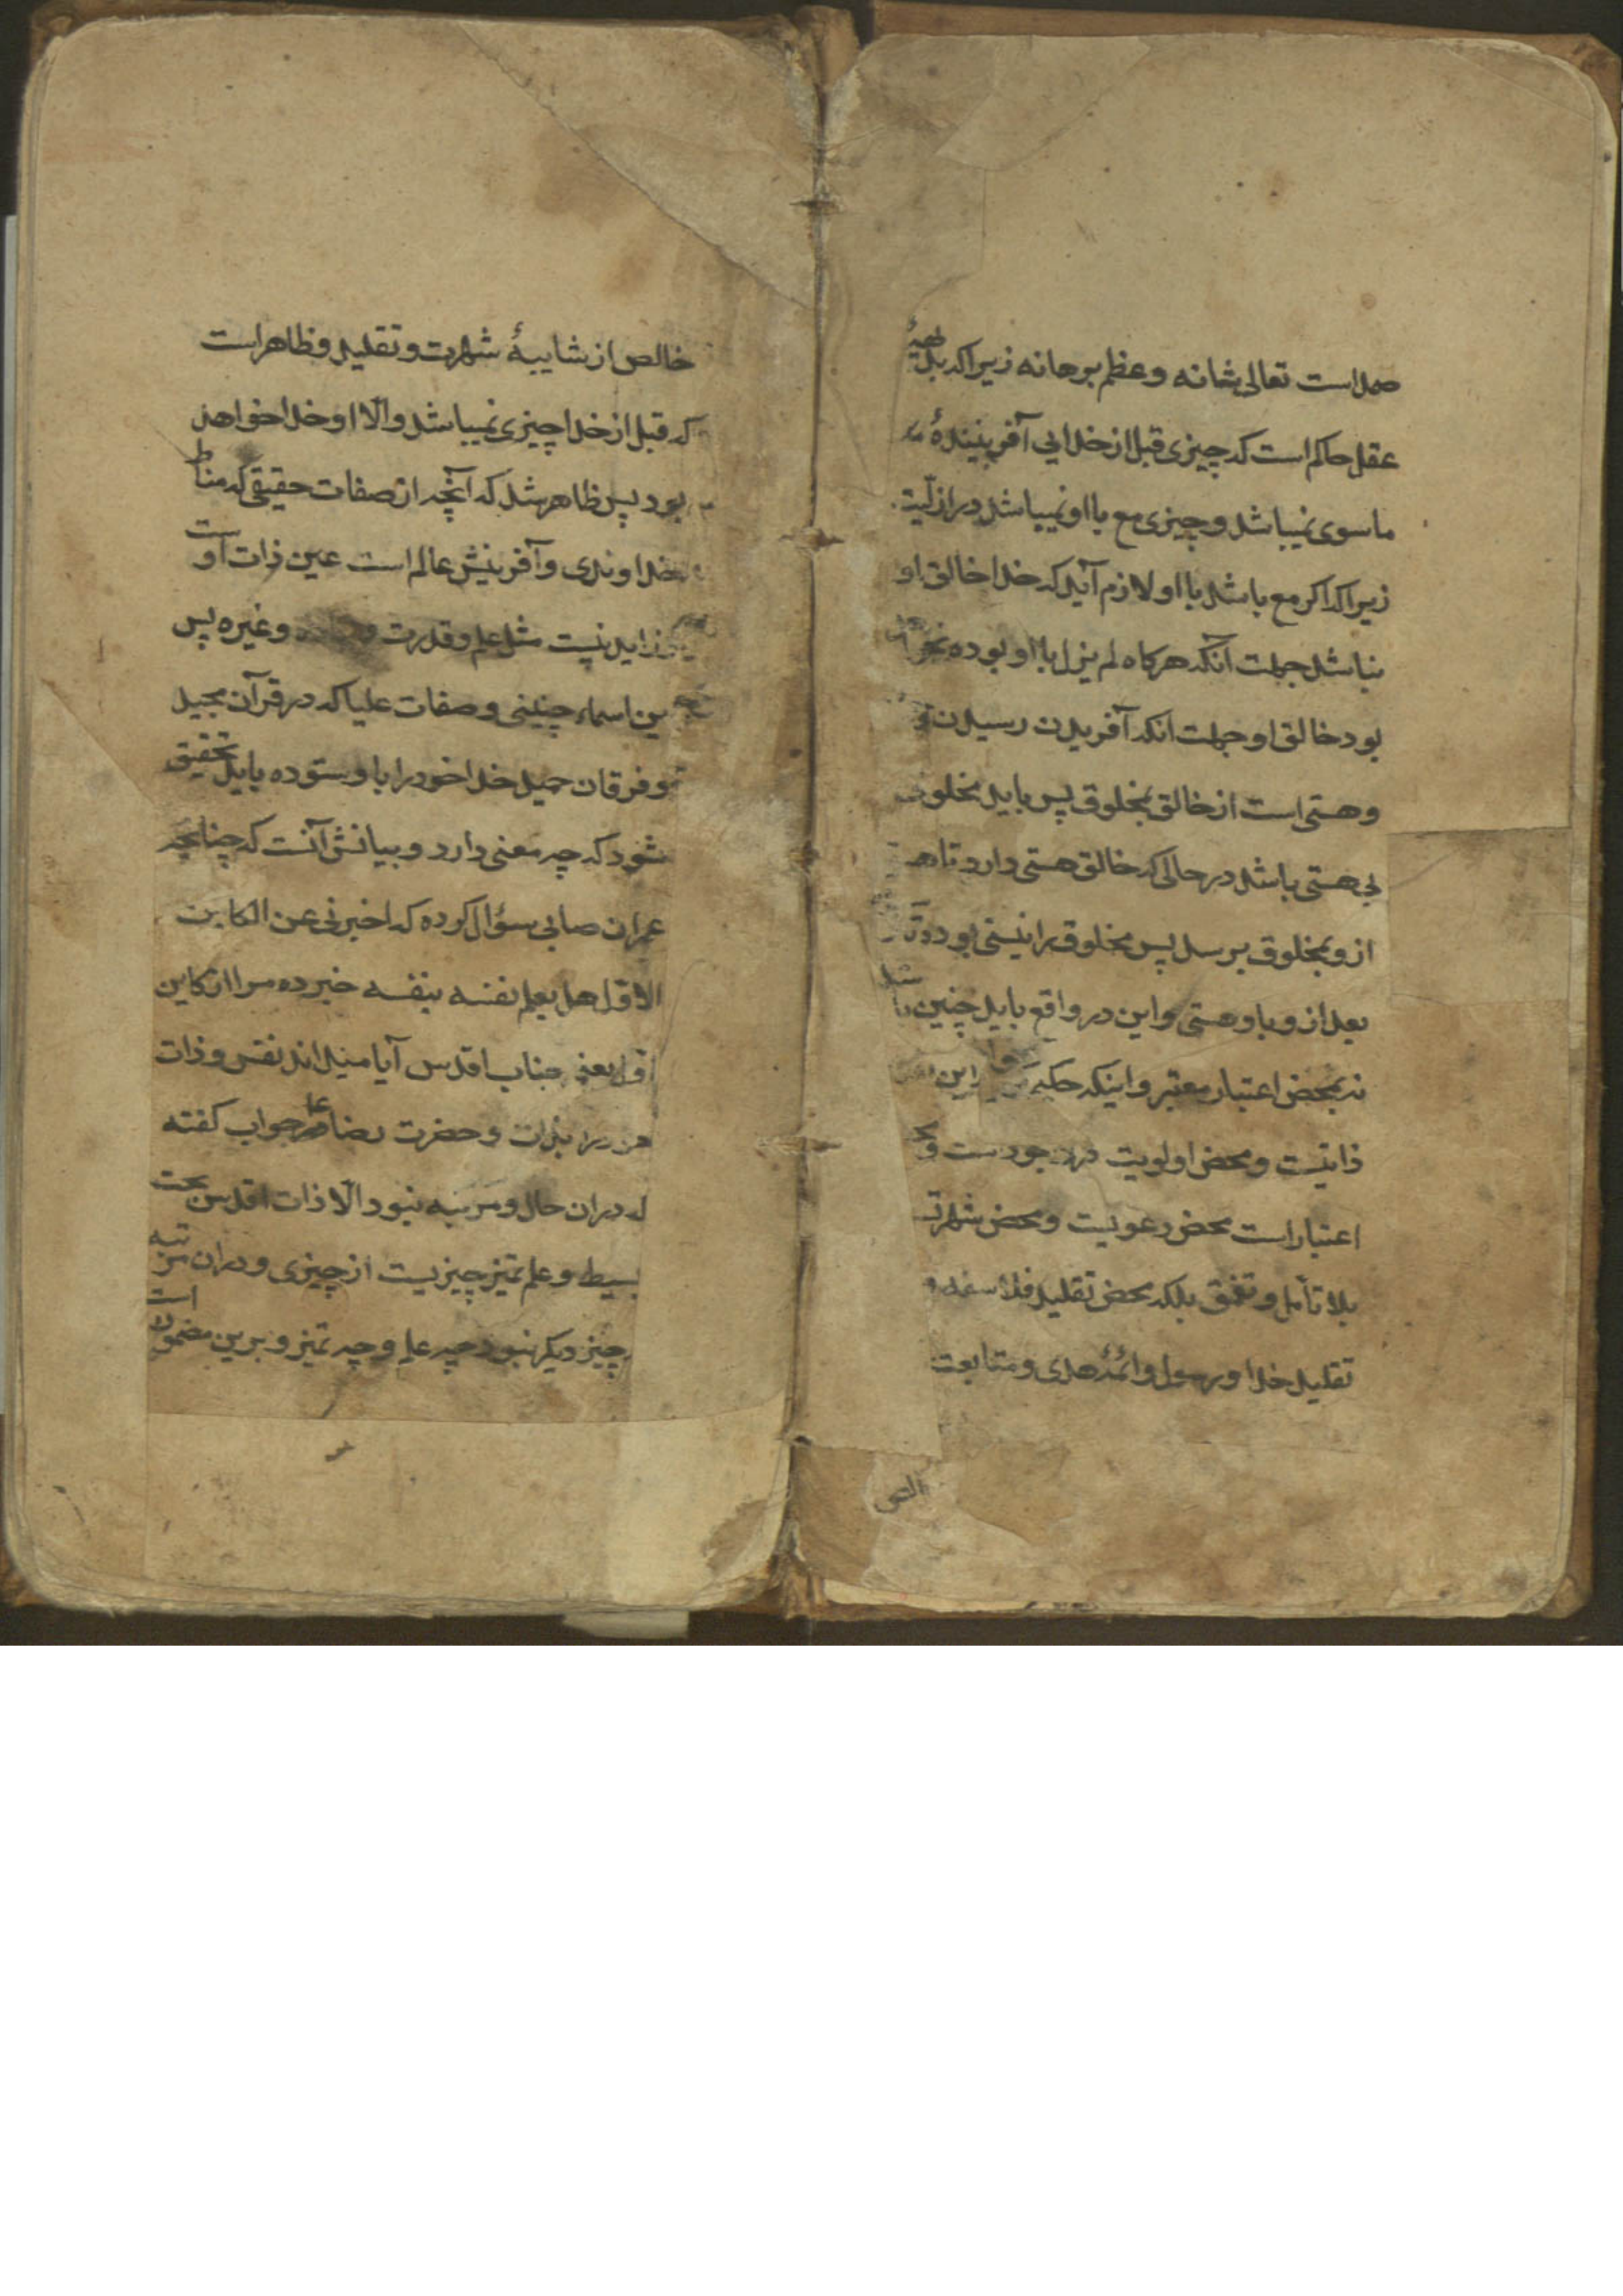 صمد است تعالی شانه و عظم برهانه زیرا که بدیهۀ
عقل حاکم است که چیزی قبل از خدایی آفرینیندۀ
ماسوی نمیباشد و چیزی مع با او نمیباشد در ازلیّت
زیرا که اکر مع باشد با او لازم آید که خدا خالق او
نباشد جهت آنکه هرکاه لم یزل با او بوده
بود خالق او جهت انکه آفریدن رسیدن
و هستی است از خالق بمخلوق پس باید مخلوق
بی هستی باشد در حالی که خالق هستی دارد تا
ازو بمخلوق برسد پس مخلوق را نیستی بود
بعد ازو با و هستی و این در واقع باید چنین باشد
نه بمحض اعتبار معتبر و اینکه این
ذاتیست و محض اولویت
اعتبار است محض دعویست و محض شهرت
بلا تأمل و تعمق بلکه محض تقلید فلاسفه و
تقلید خدا و رسول و ائمۀ هدی و متابعت
الص
خالص از شایبۀ شهرت و تقلید و ظاهر است
که قبل از خدا چیزی نمیباشد و الّا او خدا خواهد
بود پس ظاهر شد که آنچه از صفات حقیقی که مناط
خداوندی و آفرینش عالم است عین ذات اوست
زاید نیست مثل علم و قدرت و غیره پس
این اسماء چنینی و صفات علیا که در قرآن مجید
و فرقان حمید خدا خود را با و ستوده باید تحقیق
شود که چه معنی دارد و بیانش آنست که چنانچه
عمران صابی سؤال کرده که اخبرنی عن الکاین
الاوّل هل یعلم نفسه بنفسه خبر ده مرا از کاین
اوّل یعنی جناب اقدس آیا میداند نفس و ذات
خود را بذات و حضرت رضا ع در جواب کفته
که در ان حال و مرتبه نبود الّا ذات اقدس بحت
بسیط و علم تمیز چیزیست از چیزی و در ان مرتبه
چیز دیکر نبود چه علم و چه تمیز و برین مضمون است